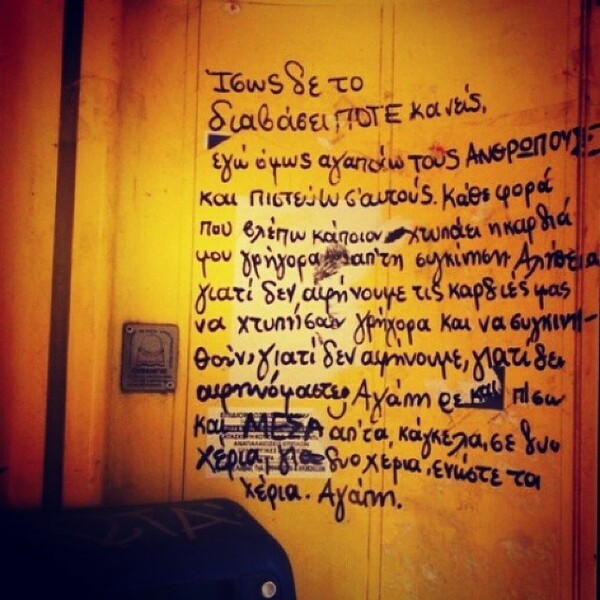 Ίσως δε το
διαβάσει ΠΟΤΕ κανείς.
εγώ όμως αγαπάω τους ΑΝΘΡΩΠΟΥΣ
και πιστεύω σ'αυτούς. Κάθε φορά
που βλέπω κάποιον χτυπάει η καρδιά
μου γρήγορα απ'τη συγκίνηση Αλήθεια
γιατί δεν αφήνουμε τις καρδιές μας
να χτυπήσουν γρήγορα και να συγκινη-
θούν, γιατί δεν αφήνουμε, γιατί δεν
αφηνόμαστε; Αγάπη ρε και πίσω
και ΜΕΣΑ απ'τα κάγκελα, σε δυο
χέρια, για δυο χέρια, ενώστε τα
χέρια. Αγάπη.